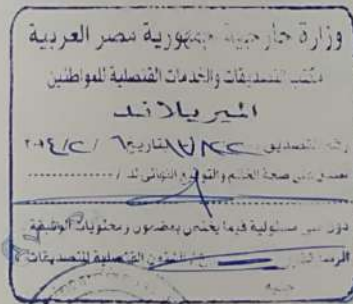 وزارة خارجية جمهورية مصر العربية
مكتب التصديقات والخدمات القنصلية للمواطنين
الميريلاند
رقم التصديق بتاريخ ٢٠٢٤/٢/٦
نصدق على صحة الختم والتوقيع النهائي لـ / ............
دون أدنى مسئولية فيما يختص بمضمون ومحتويات الوثيقة
الشئون القنصلية للتصديقات
جنيه